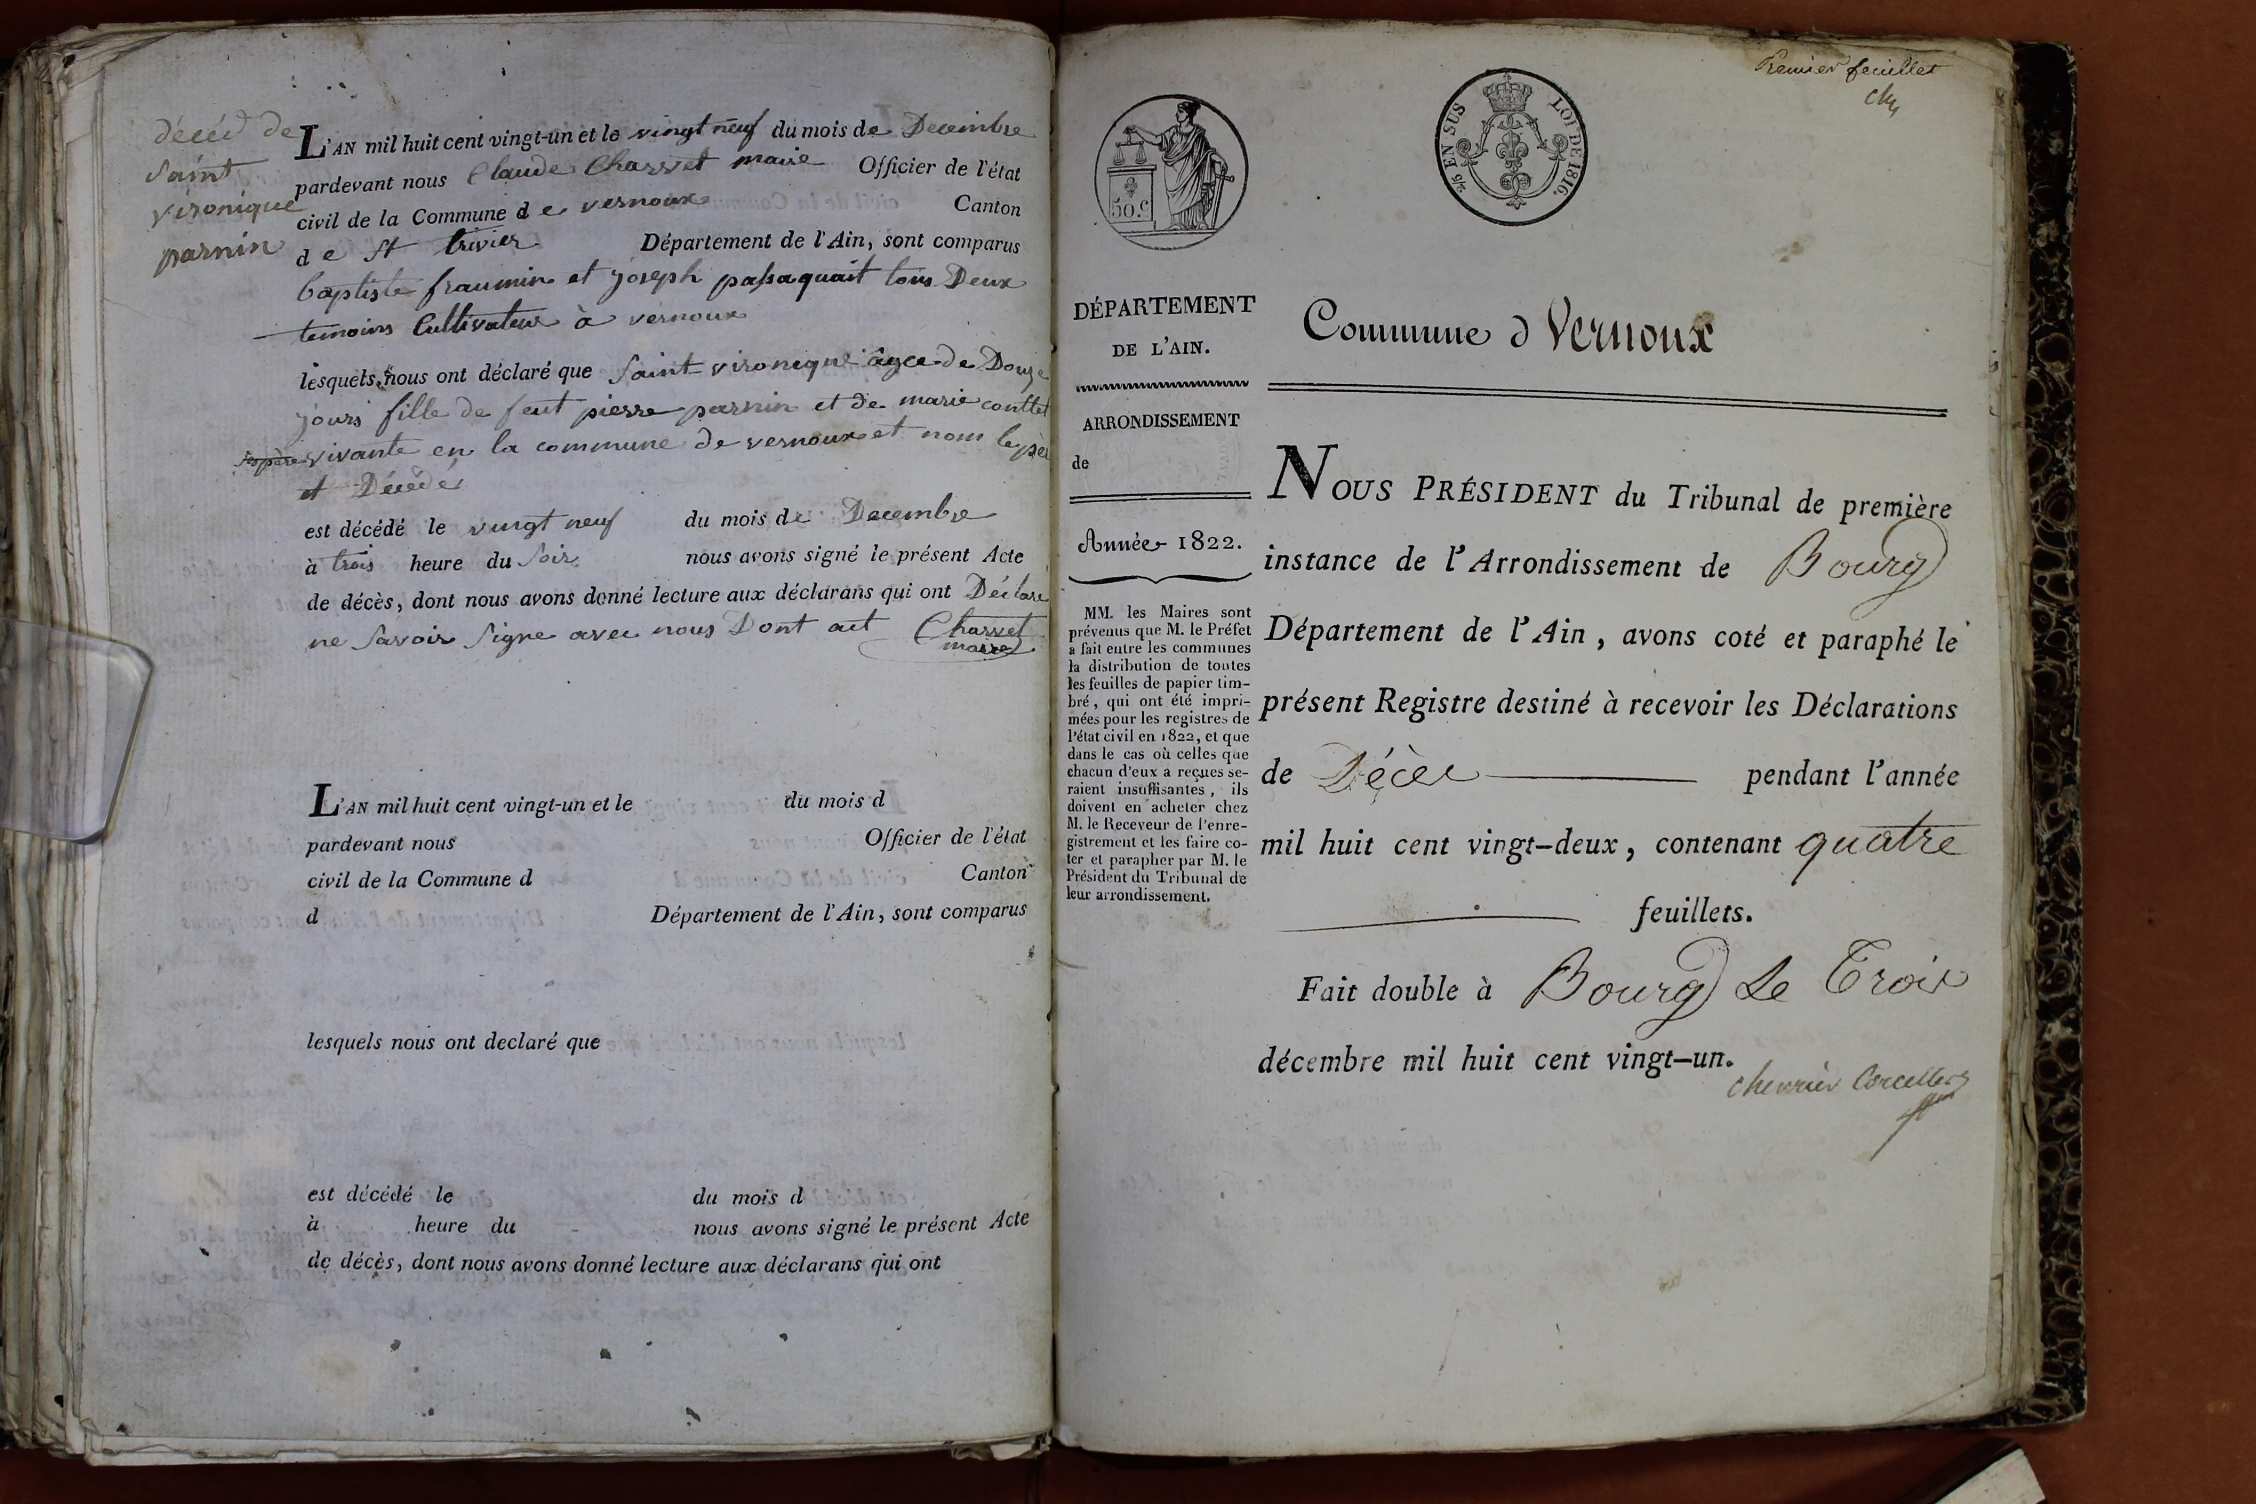 décéd de
saint
vironique
parnin
L'AN mil huit cent vingt-un et le vingt neuf du mois de Decembre
pardevant nous Claude Chasset maire Officier de l'état
civil de la Commune d e vernoux Canton
d e St trivier Département de l'Ain, sont comparus
baptiste fraumin et joseph passaquait tous Deux
temoins Cultivateur à vernoux
lesquels nous ont déclaré que saint vironique âgee de Douze
jours fille de feut pierre parnin et de marie conttet
vivante en la commune de vernoux et nom le per
et Décédé
est décédé le vingt neuf du mois de Decembre
à trois heure du soir nous avons signé le présent Acte
de décès, dont nous avons donné lecture aux déclarans qui ont Déclaré
ne savoir signe avec nous Dont act Chasset
maire
L'AN mil huit cent vingt-un et le du mois d
pardevant nous Officier de l'état
civil de la Commune d Canton
d Département de l'Ain, sont comparus
lesquels nous ont declaré que
est décédé le du mois d
à heure du nous avons signé le présent Acte
de décès, dont nous avons donné lecture aux déclarans qui ont
Premier feuillet
50.c
45 EN SUS LOI DE 1816.
DÉPARTEMENT
DE L'AIN.
ARRONDISSEMENT
de
Année 1822.
MM. les Maires sont
prévenus que M. le Préfet
a fait entre les communes
la distribution de toutes
les feuilles de papier tim-
bré, qui ont été impri-
mées pour les registres de
l'état civil en 1822, et que
dans le cas où celles que
chacun d'eux a reçues se-
raient insuffisantes, ils
doivent en acheter chez
M. le Receveur de l'enre-
gistrement et les faire co-
ter et parapher par M. le
Président du Tribunal de
leur arrondissement.
Commune d Vernoux
NOUS PRÉSIDENT du Tribunal de première
instance de l'Arrondissement de Bourg
Département de l'Ain, avons coté et paraphé le
présent Registre destiné à recevoir les Déclarations
de Décès pendant l'année
mil huit cent vingt-deux, contenant quatre
feuillets.
Fait double à Bourg Le Trois
décembre mil huit cent vingt-un.
Chevrier Corcelles